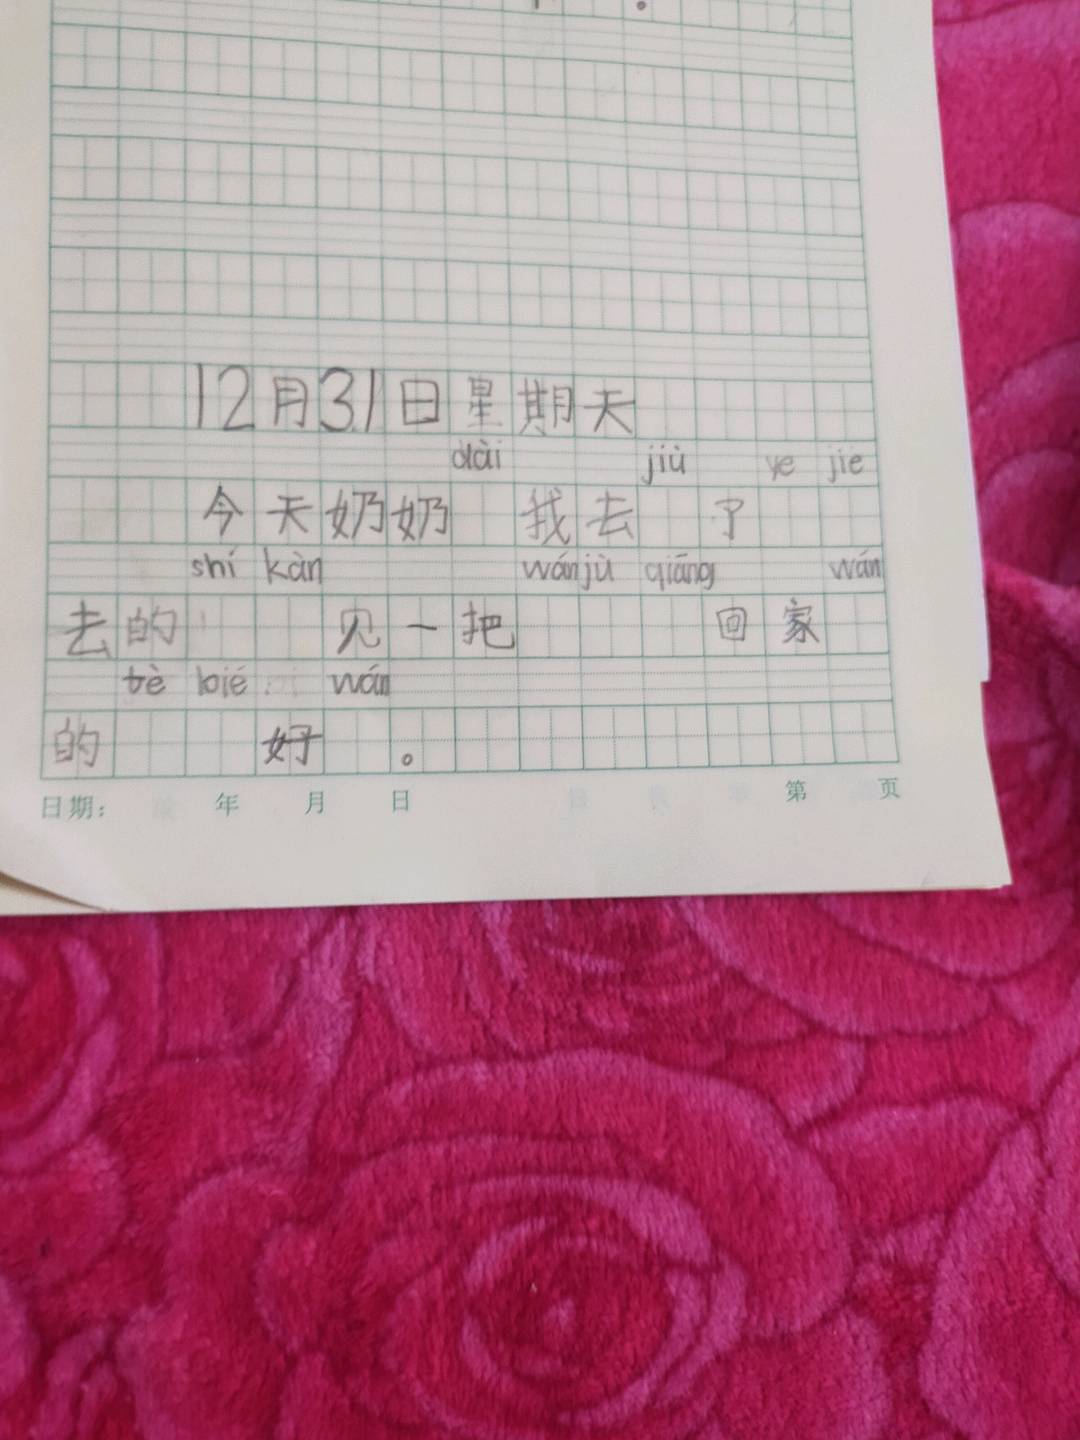 12月31日星期天
dài jiù ye jie
今天奶奶 我去 了
shí kàn wánjù qiāng wán
去的 见一把 回家
tè bié wán
的 好 。
日期： 年 月 日 第 页